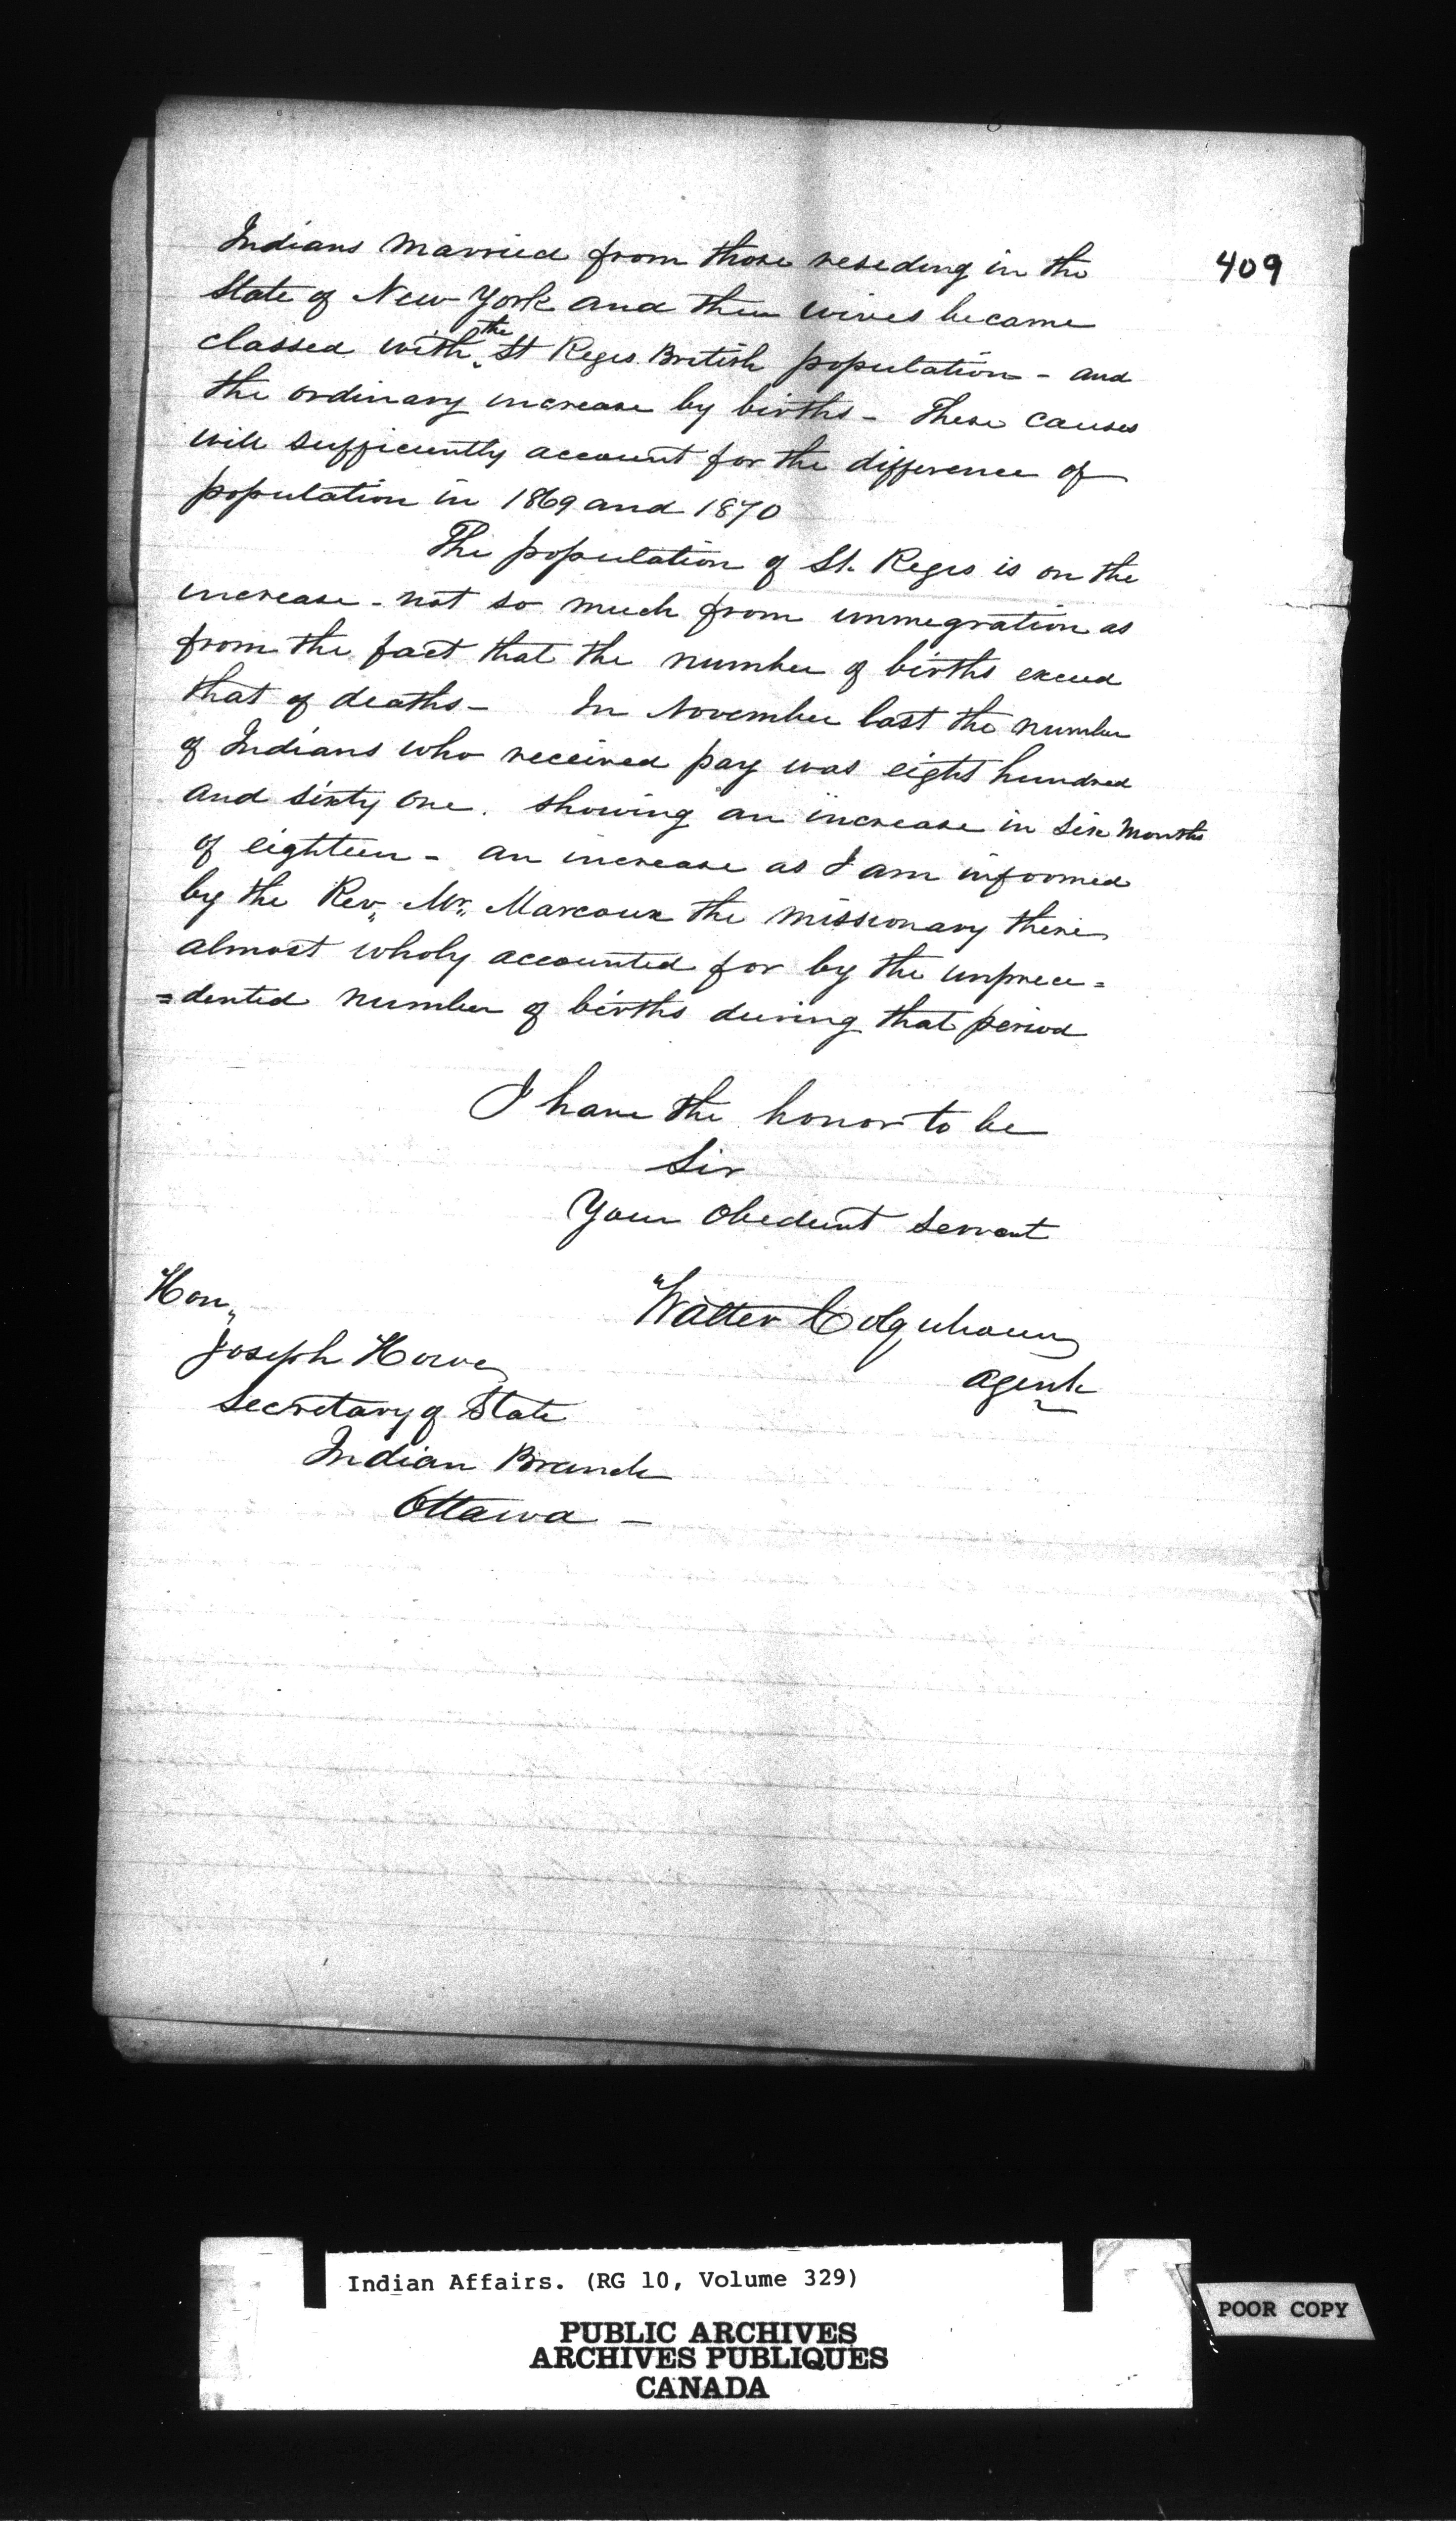 409
Indians married from those reseding in the
State of New York and their wives became
classed with the St Regis British population - and
the ordinary increase by births - These causes
will sufficiently account for the difference of
population in 1869 and 1870
The population of St. Regis is on the
increase - not so much from immegration as
from the fact that the number of births exceed
that of deaths - In November last the number
of Indians who received pay was eight hundred
and sixty one. showing an increase in six months
of eighteen - an increase as I am informed
by the Rev. Mr. Marcoux the missionary there
almost wholy accounted for by the unprece=
=dented number of births during that period
I have the honor to be
Sir
Your Obedient Servant
Walter Colquhoun
Agent
Hon.
Joseph Howe
Secretary of State
Indian Branch
Ottawa -
Indian Affairs. (RG 10, Volume 329)
PUBLIC ARCHIVES
ARCHIVES PUBLIQUES
CANADA
POOR COPY